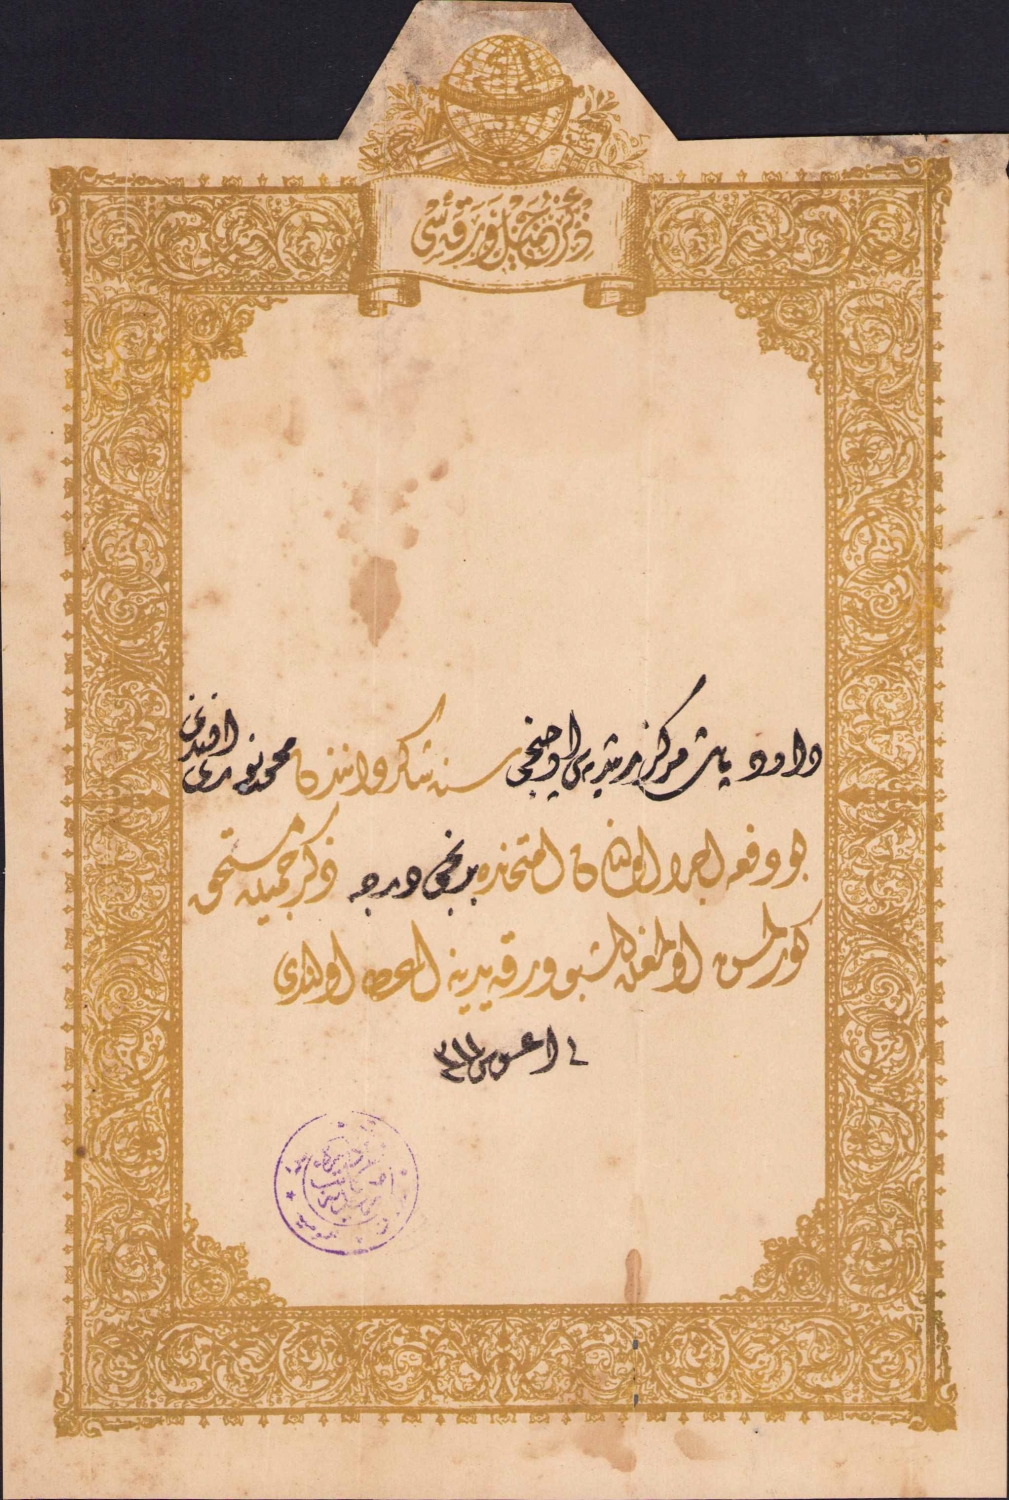 ذكر جميل ورقه سی
داود پاشا مركز رشديه سی اوچنجی سنه شاكردانندن محمد نوری افندی
بو دفعه اجرا اولنان امتحانده برنجی درجه ذكر جميله مستحق
كورلمش اولمغله اشبو ورقه يدينه اعطا اولندی
اغستوس ٣١٧